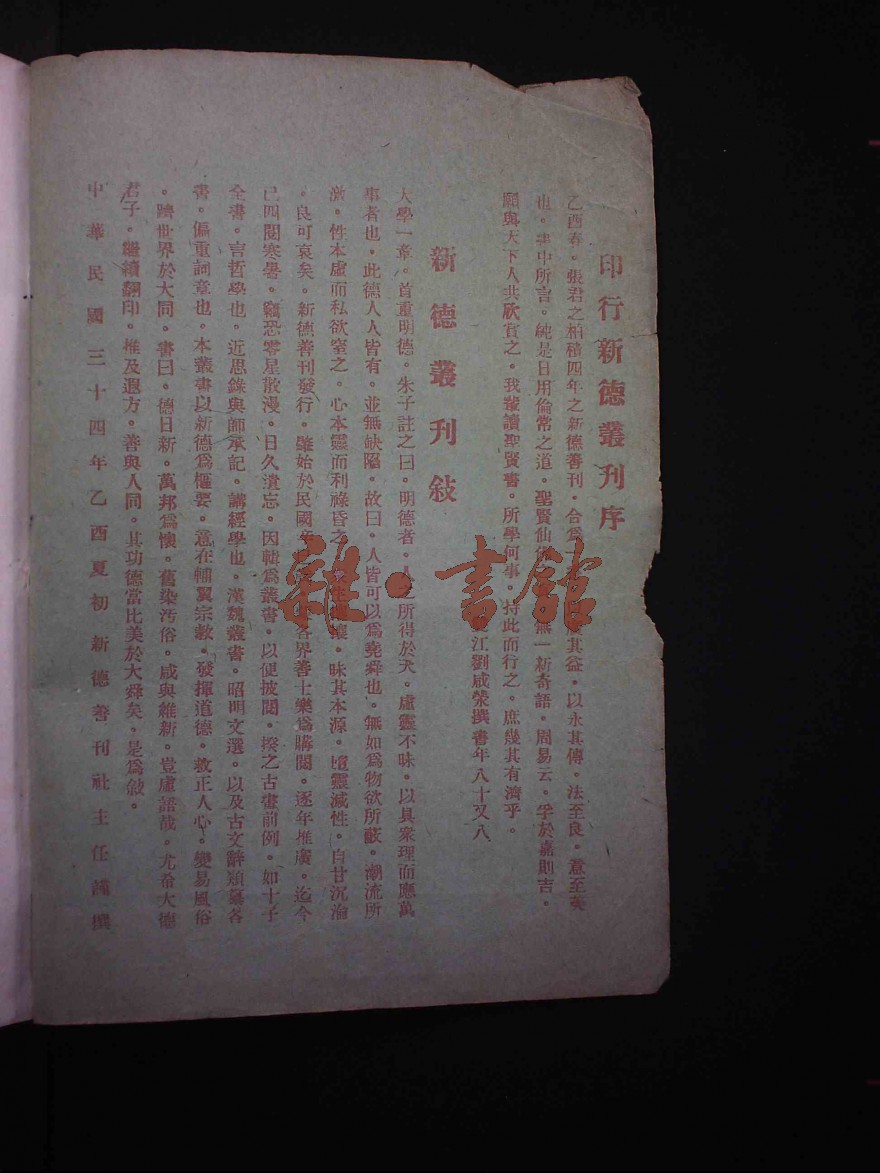 印行新德叢刊序
乙酉春。張君之柏積四年之新德善刊。合爲其益。以永其傳。法至良。意至美
也。書中所言。純是日用倫常之道。聖賢仙無一新奇語。周易云。孚於嘉則吉。
願與天下人共欣賞之。我輩讀聖賢書。所學何事。持此而行之。庶幾其有濟乎。
江劉咸滎撰書年八十又八
新德叢刊敍
大學一章。首重明德。朱子註之曰。明德者。人之所得於天。虛靈不昧。以具衆理而應萬
事者也。此德人人皆有。並無缺陷。故曰。人皆可以爲堯舜也。無如爲物欲所蔽。潮流所
激。性本虛而私欲窒之。心本靈而利祿昏之。昧其本源。墮靈滅性。自甘沉淪
。良可哀矣。新德善刊發行。肇始於民國各界善士樂爲購閱。逐年推廣。迄今
已四閱寒暑。竊恐零星散漫。日久遺忘。因輯爲叢書。以便披閱。揆之古書前例。如十子
全書。言哲學也。近思錄與師承記。講經學也。漢魏叢書。昭明文選。以及古文辭類纂各
書。偏重詞章也。本叢書以新德爲樞要。意在輔翼宗教。發揮道德。救正人心。變易風俗
。躋世界於大同。書曰。德日新。萬邦爲懷。舊染汚俗。咸與維新。豈虛語哉。尤希大德
君子。繼續翻印。推及遐方。善與人同。其功德當比美於大舜矣。是爲敍。
中華民國三十四年乙酉夏初新德善刊社主任謹撰
雜·書館